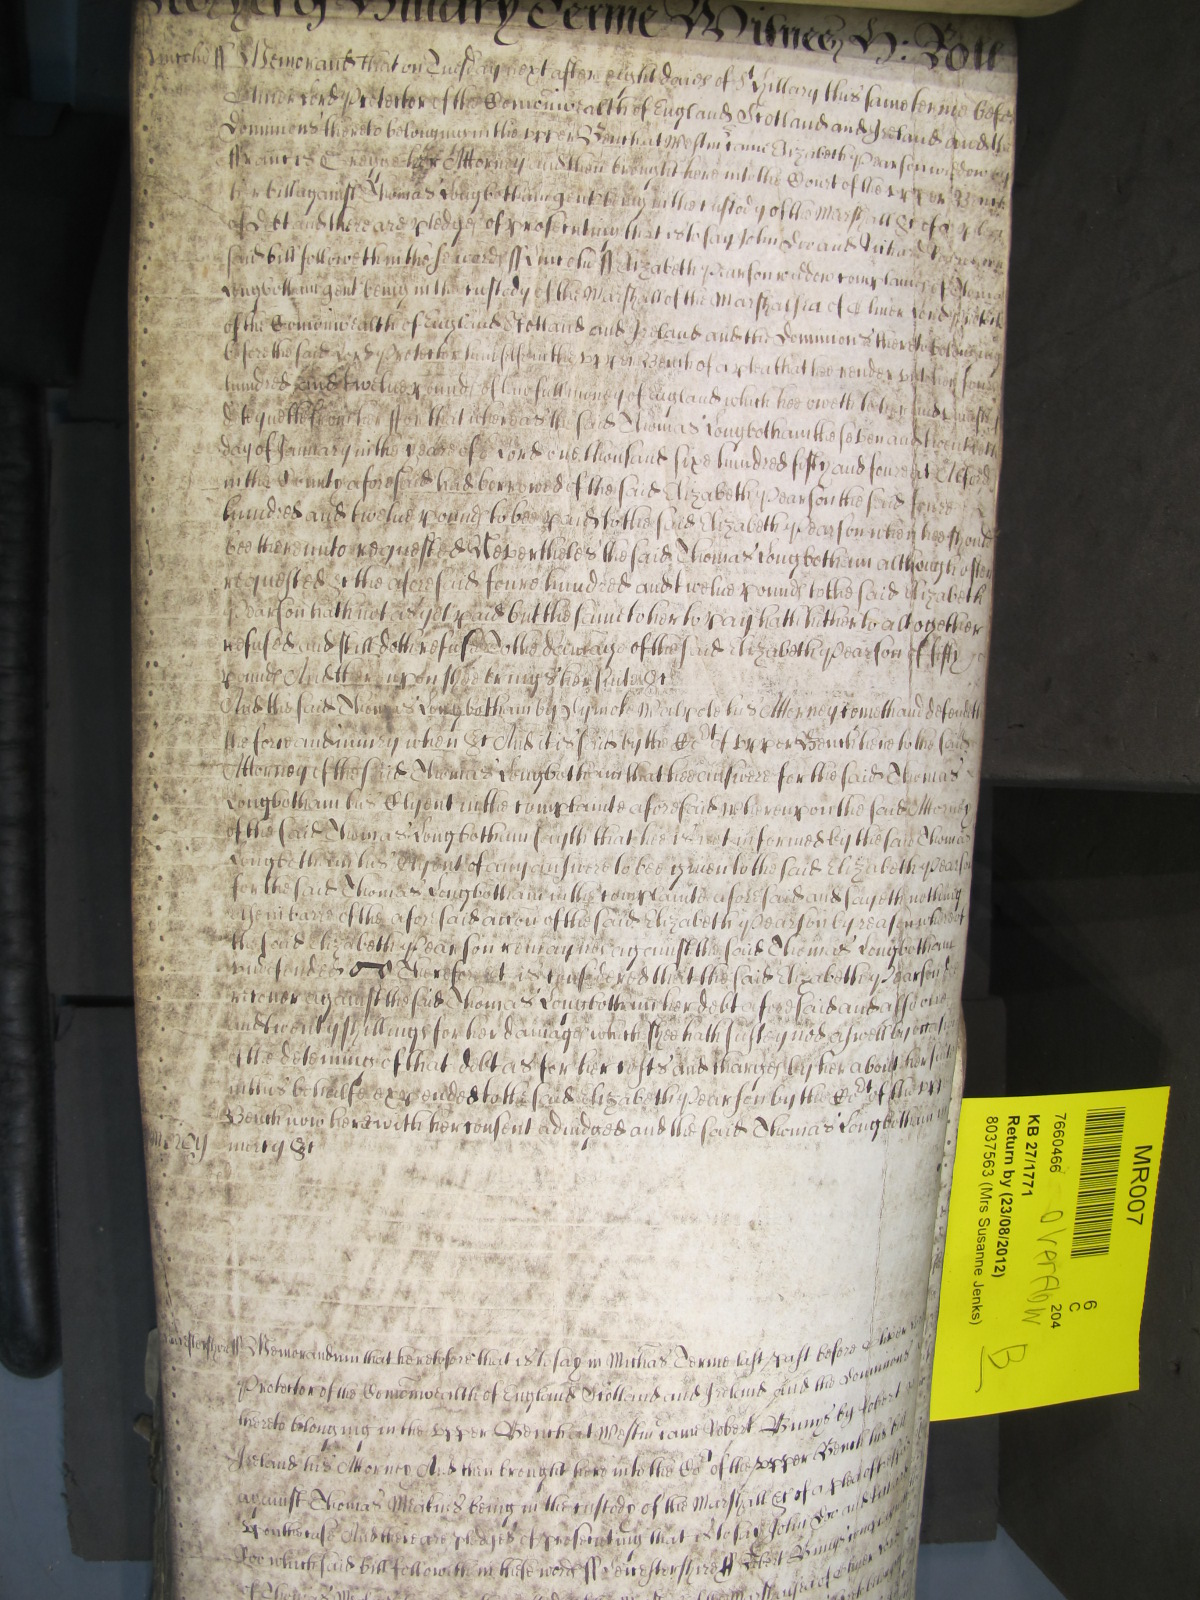 Hillary Terme Witnes H: Roll
Lincoln ss Memorand that on Tuesday next after eight daies of St Hillary this same terme before
Oliver Lord Protector of the Comonwealth of England Scotland and Ireland and the
Dominions thereto belonging in the upper Bench at Westm came Elizabeth Pearson widow by
Francis her Attorney and then brought here into the Court of the upper Bench
her bill against Thomas Longbotham gent being in the custody of the Marshall &c of a plea
of debt and there are pledges of prosecuting that is to say John Doe and Richard Roe which
said bill followeth in these words ss Lincoln ss Elizabeth Pearson widow complaines of Thomas
Longbotham gent being in the custody of the Marshall of the Marshalsea of Oliver Lord Protector
of the Comonwealth of England Scotland and Ireland and the Dominions thereto belonging
before the said Lord Protector himselfe in the upper Bench of a plea that hee render unto her foure
hundred and twelve pounds of lawfull money of England which hee oweth to her and unjustly
deteyneth from her ffor that whereas the said Thomas Longbotham the seven and twentieth
day of January in the yeare of o Lord one thousand sixe hundred fifty and foure at
in the County aforesaid had borrowed of the said Elizabeth Pearson the said foure
hundred and twelve pounds to bee paid to the said Elizabeth Pearson when hee should
bee thereunto requested Neverthelesse the said Thomas Longbotham although often
requested &c the aforesaid foure hundred and twelve pounds to the said Elizabeth
Pearson hath not as yet paid but the same to her to pay hath hitherto altogether
refused and still doth refuse To the damage of the said Elizabeth Pearson of fifty
pounds And thereupon shee brings her suite &c
And the said Thomas Longbotham by Symoke Walpole his Attorney cometh and defendeth
the force and iniury when &c And it is said by the Co't of upper Bench here to the said
Attorney of the said Thomas Longbotham that hee answere for the said Thomas
Longbotham his Clyent in the complainte aforesaid whereupon the said Attorney
of the said Thomas Longbotham sayth that hee is not informed by the said Thomas
Longbotham his Clyent of any answere to bee given to the said Elizabeth Pearson
for the said Thomas Longbotham in the complainte aforesaid and sayeth nothing
in barre of the aforesaid accon of the said Elizabeth Pearson by reason whereof
the said Elizabeth Pearson remay not against the said Thomas Longbotham
undefended Therefore it is considered that the said Elizabeth Pearson doe
recover against the said Thomas Longbotham her debt aforesaid and alsoe one
and twenty shillings for her damages which shee hath susteyned aswell by occasion
of the deteining of that debt as for her costs and charges by her about her suite
in this behalfe expended to the said Elizabeth Pearson by the Co't of the upper
Bench now here with her consent adiudged and the said Thomas Longbotham in
Mercy mercy &c
Leicestershire ss Memorandum that heretofore that is to say in Michas Terme last past before Oliver Lord
Protector of the Comonwealth of England Scotland and Ireland And the Dominions
thereto belonging in the upper Bench at Westm came Robert Bunys by Robert
Ireland his Attorney And then brought here into the Co't of the upper Bench his bill
against Thomas Meakins being in the custody of the Marshall &c of a plea of trespas
upon the case And there are pledges of prosecuting that is to say John Doe and Richard
Roe which said bill followeth in these words ss Leicestershire ss Robert Bunys complaines
of Thomas
MR007
6
C
204
7660466 - Overflow
KB 27/1771
Return by (23/08/2012)
8037563 (Mrs Susanne Jenks)
B